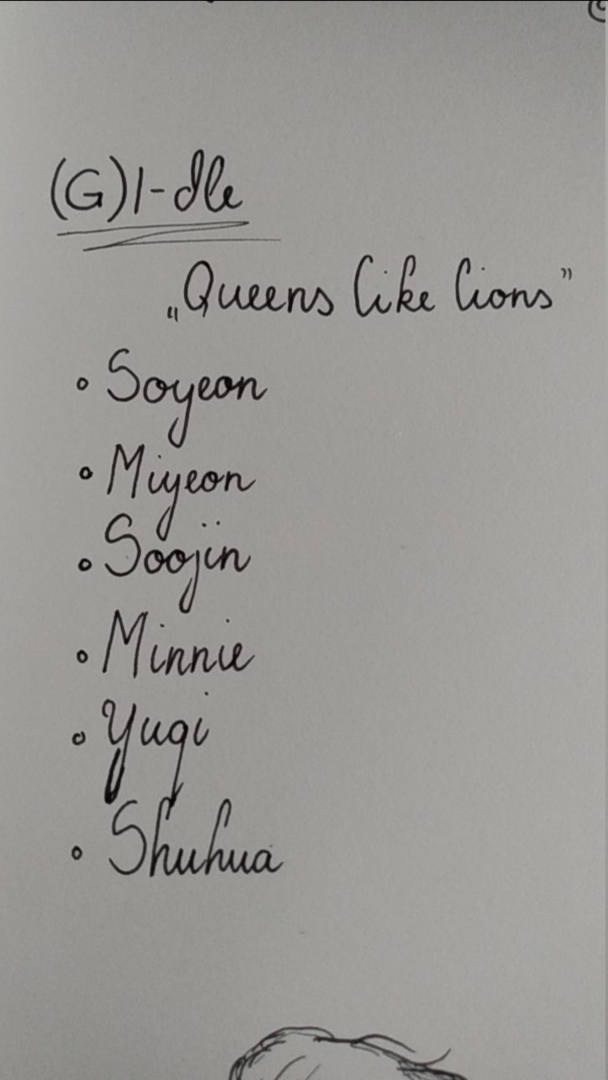 (G)I-dle
„Queens like lions”
• Soyeon
• Miyeon
• Soojin
• Minnie
• Yuqi
• Shuhua